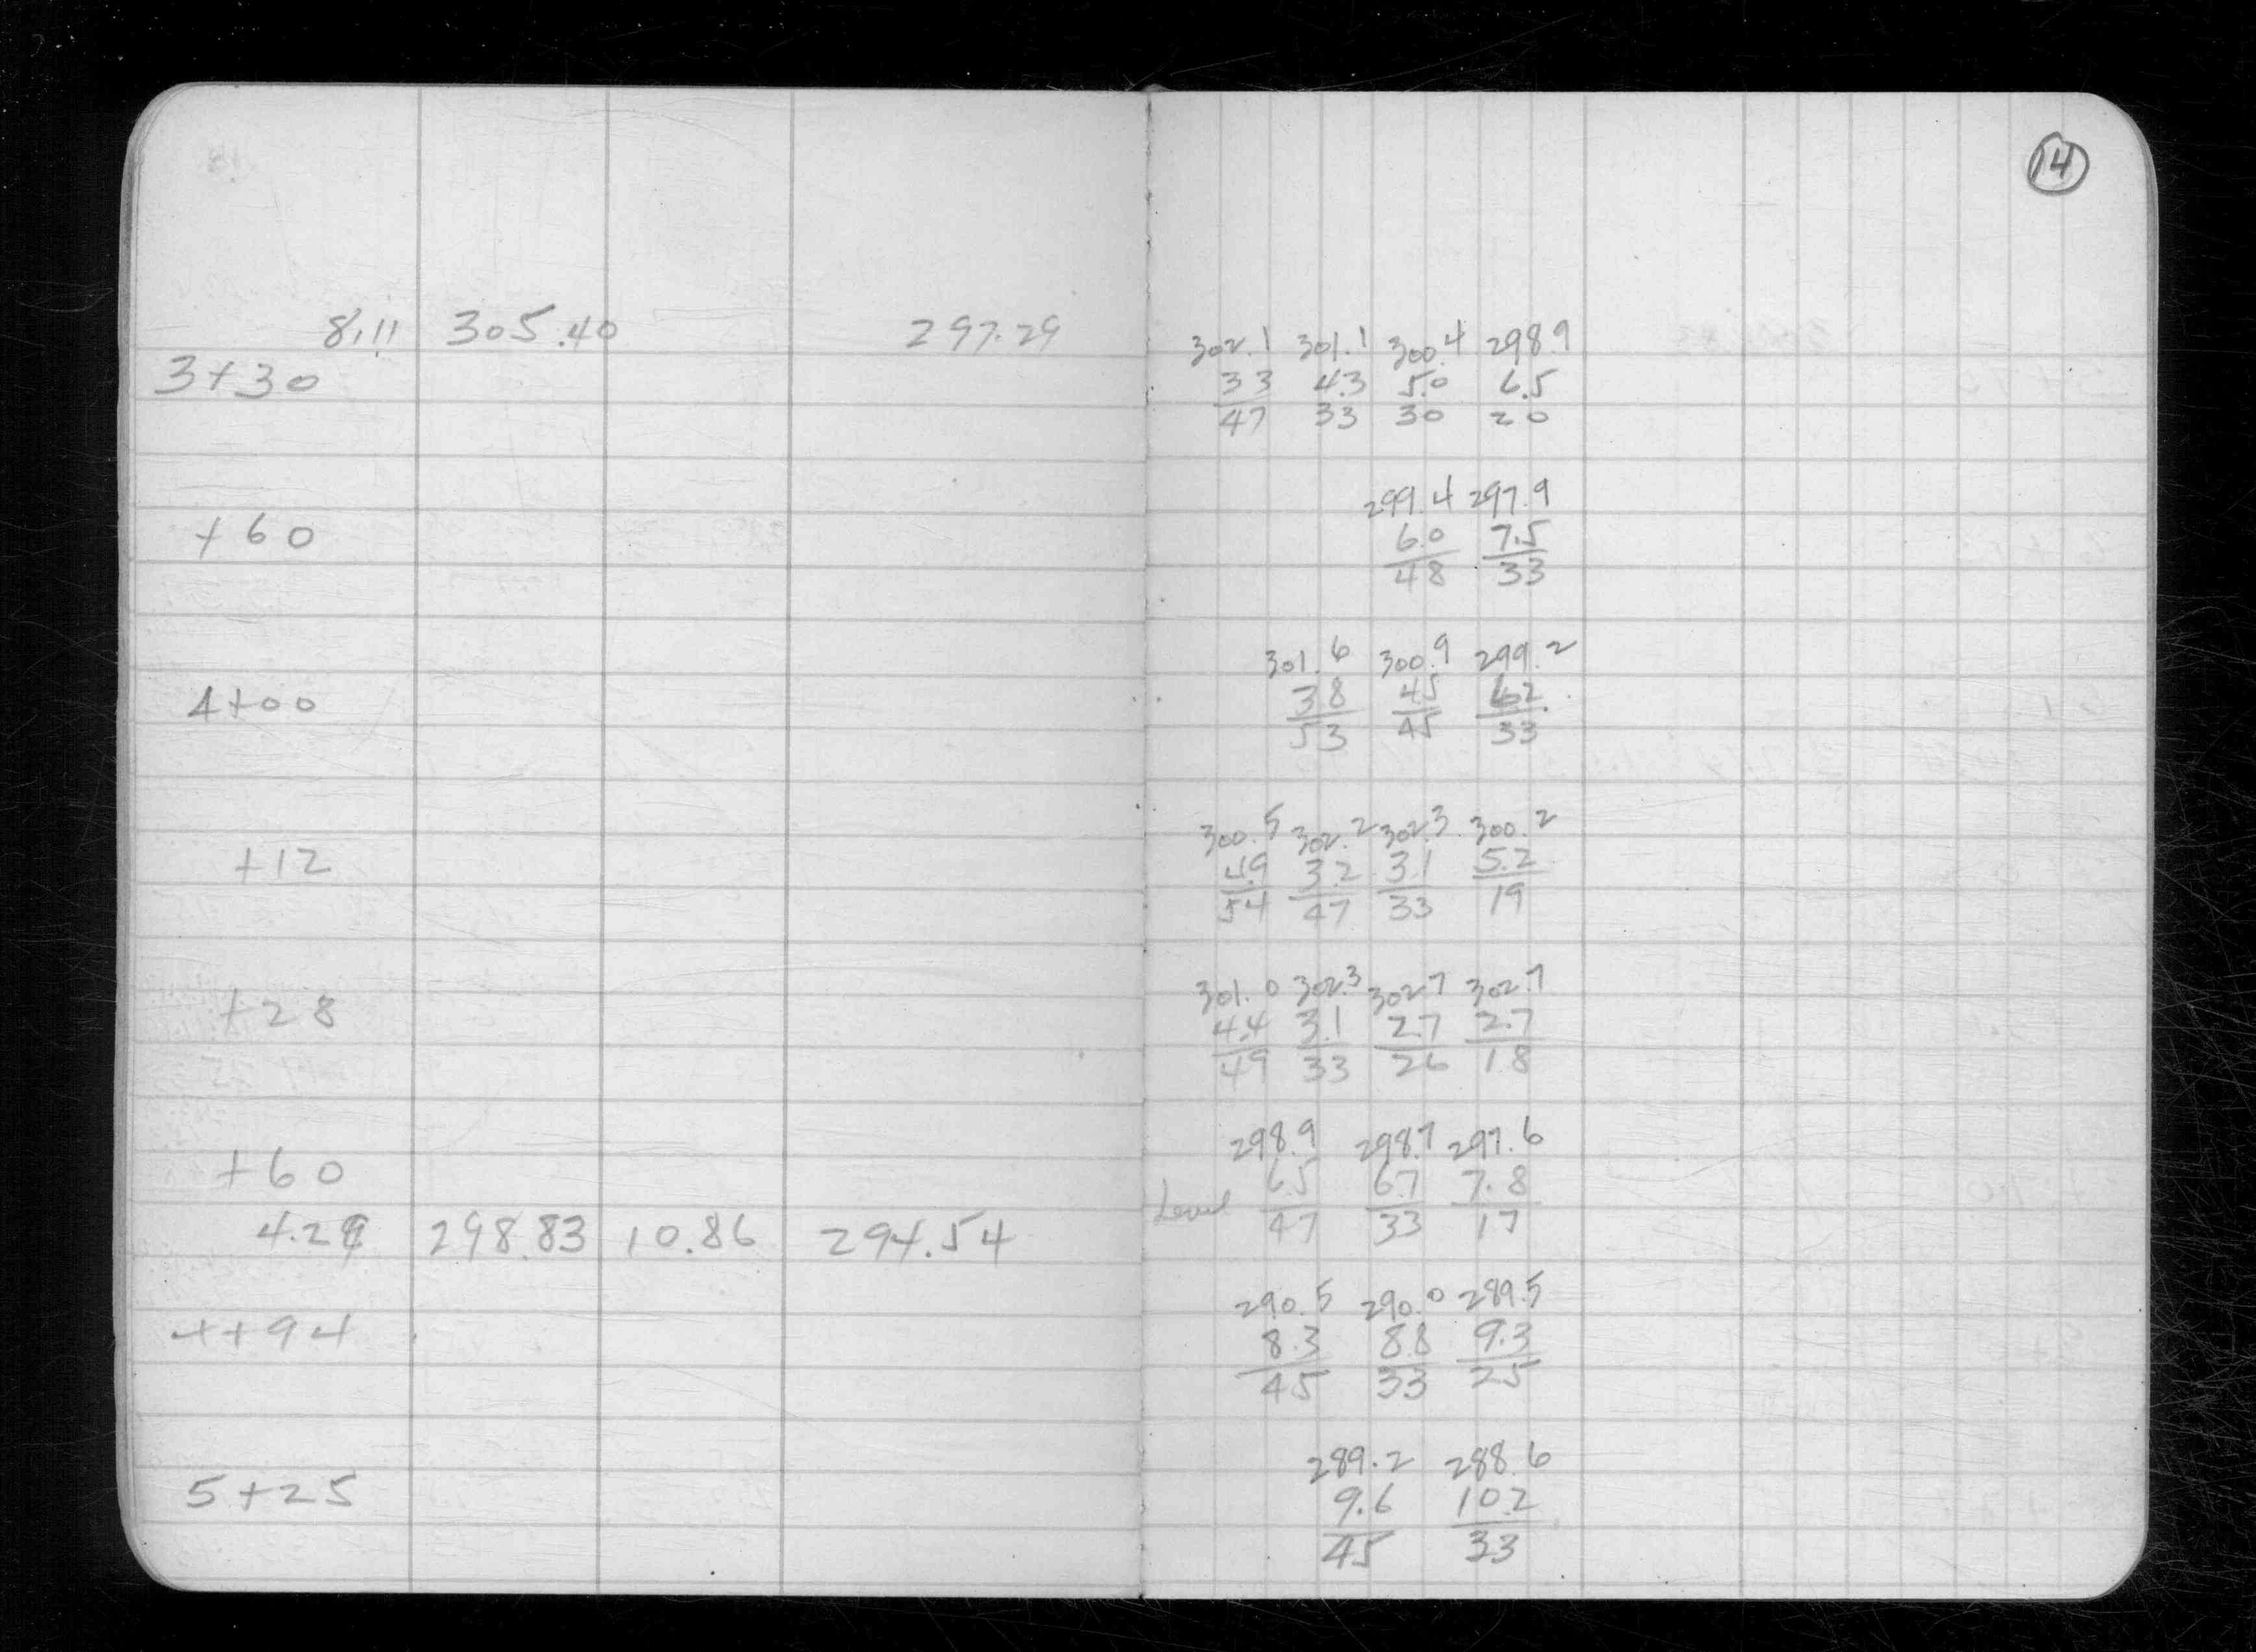 14
8.11 305.40 297.29
302.1 301.1 300.4 298.9
3+30 33 4.3 5.0 6.5
47 33 30 20
299.4 297.9
+60 6.0 7.5
48 33
301.6 300.9 299.2
4+00 38 45 62
53 45 33
300.5 302.2 302.3 300.2
+12 4.9 3.2 3.1 5.2
54 47 33 19
301.0 302.3 302.7 302.7
+28 4.4 3.1 2.7 2.7
49 33 26 18
298.9 298.7 297.6
+60 6.5 6.7 7.8
Level 47 33 17
4.29 298.83 10.86 294.54
290.5 290.0 289.5
4+94 8.3 8.8 9.3
45 33 25
289.2 288.6
5+25 9.6 10.2
45 33